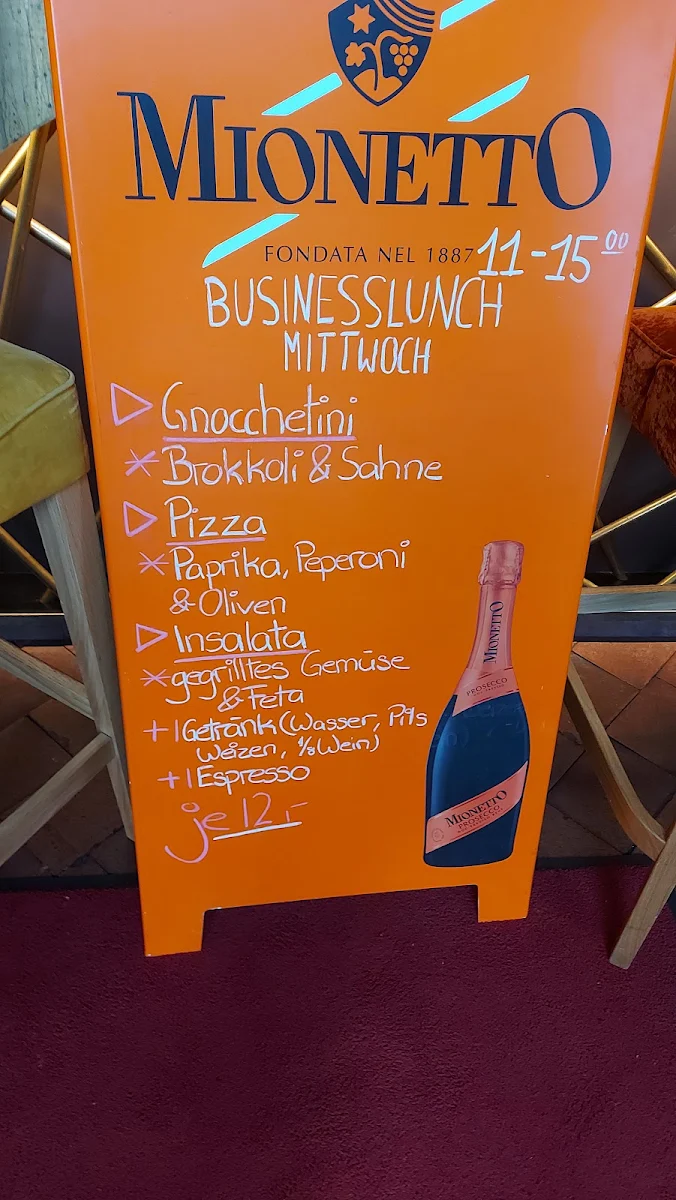 MIONETTO
FONDATA NEL 1887
11-15⁰⁰
BUSINESSLUNCH
MITTWOCH
▷ Gnocchetini
* Brokkoli & Sahne
▷ Pizza
* Paprika, Peperoni
& Oliven
▷ Insalata
* gegrilltes Gemüse
& Feta
+ 1 Getränk (Wasser, Pils
Weizen, ⅛ Wein)
+ 1 Espresso
je 12,-
MIONETTO
PROSECCO
MIONETTO
PROSECCO